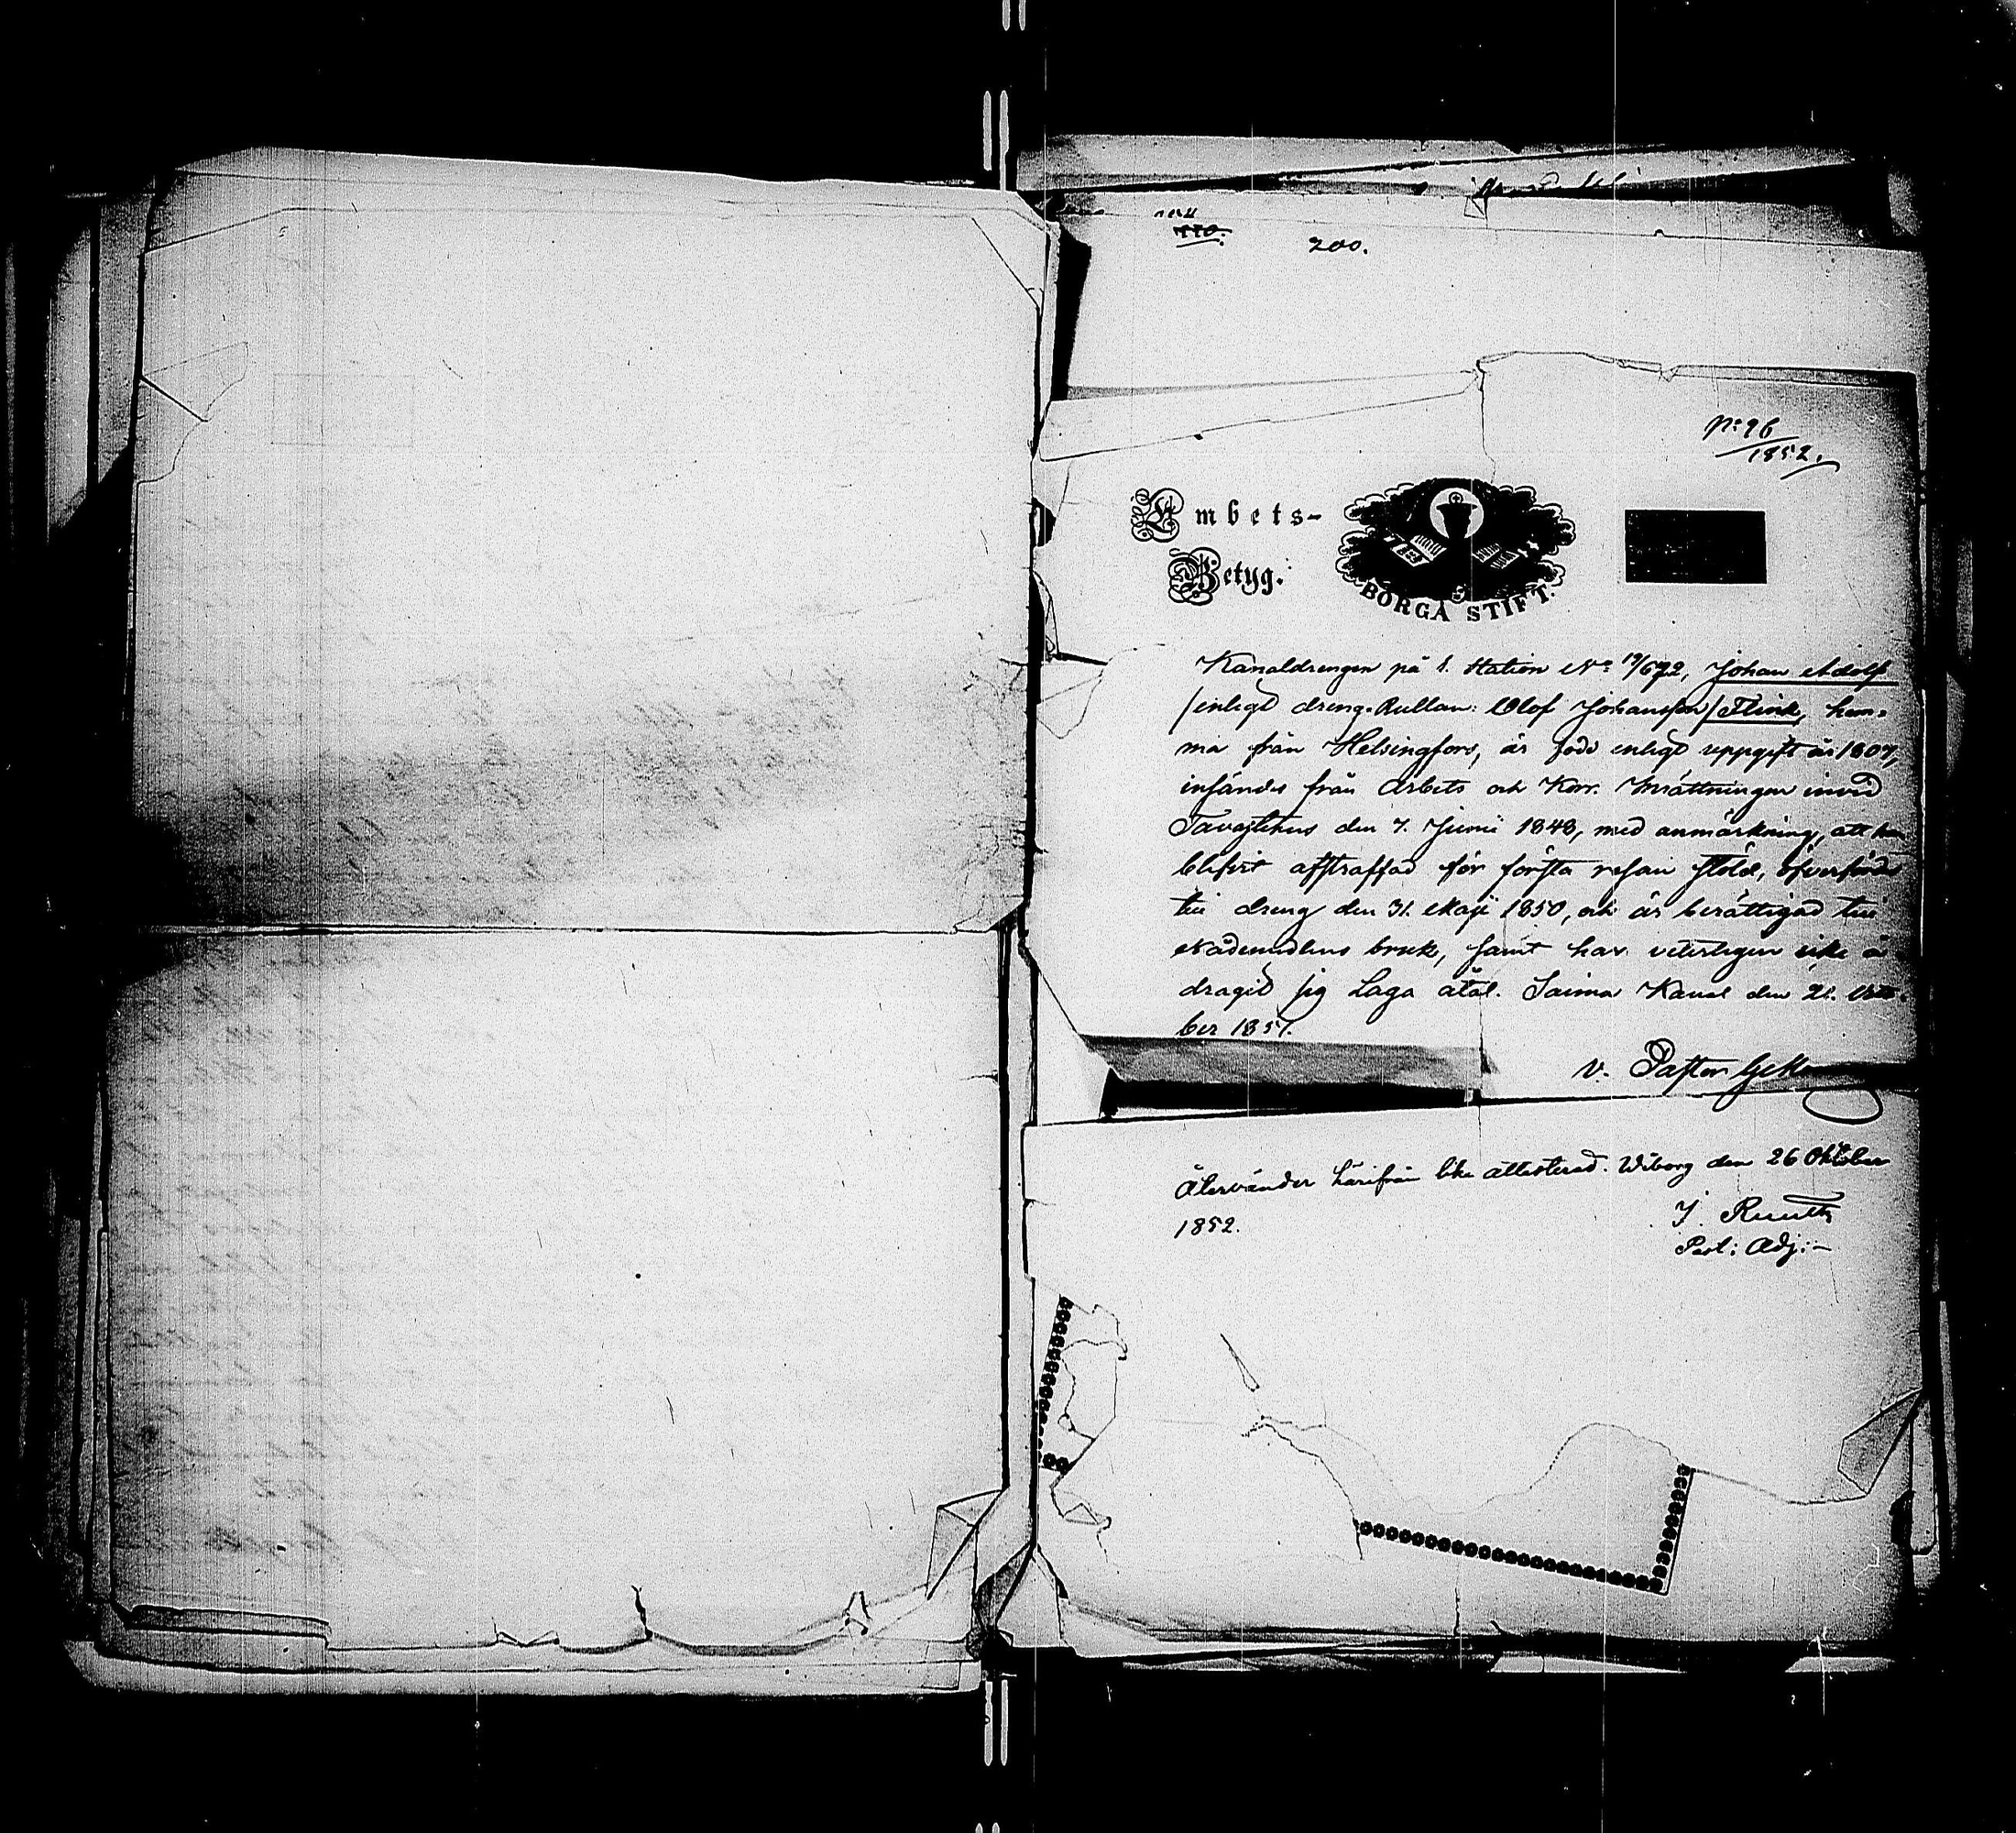 200.
No: 96
1852.
Embets-
Betyg.
BORGÅ STIFT.
Kanaldrengen på 1. Station No 19/672, Johan Adolf
/enligt dreng-Rullan: Olof Johansson/ Flink, hem-
ma från Helsingfors, är född enligt uppgift år 1807,
införder från Arbets och Korr. Inrättningen invid
Tavastehus den 7. Junii 1848, med anmärkning, att han
blifvit afstraffad för första resan stöld, öfverfördes
till dreng den 31. Maji 1850, och är berättigad till
Nådemedlens bruk, samt har veterligen icke å
dragit sig Laga åtal. Saima Kanal den 21. Octo-
ber 1851.
V. Pastor
Återvänder härifrån lika attesterad. Wiborg den 26 Oktober
1852.
J. Ruuth
Past: Adj:-